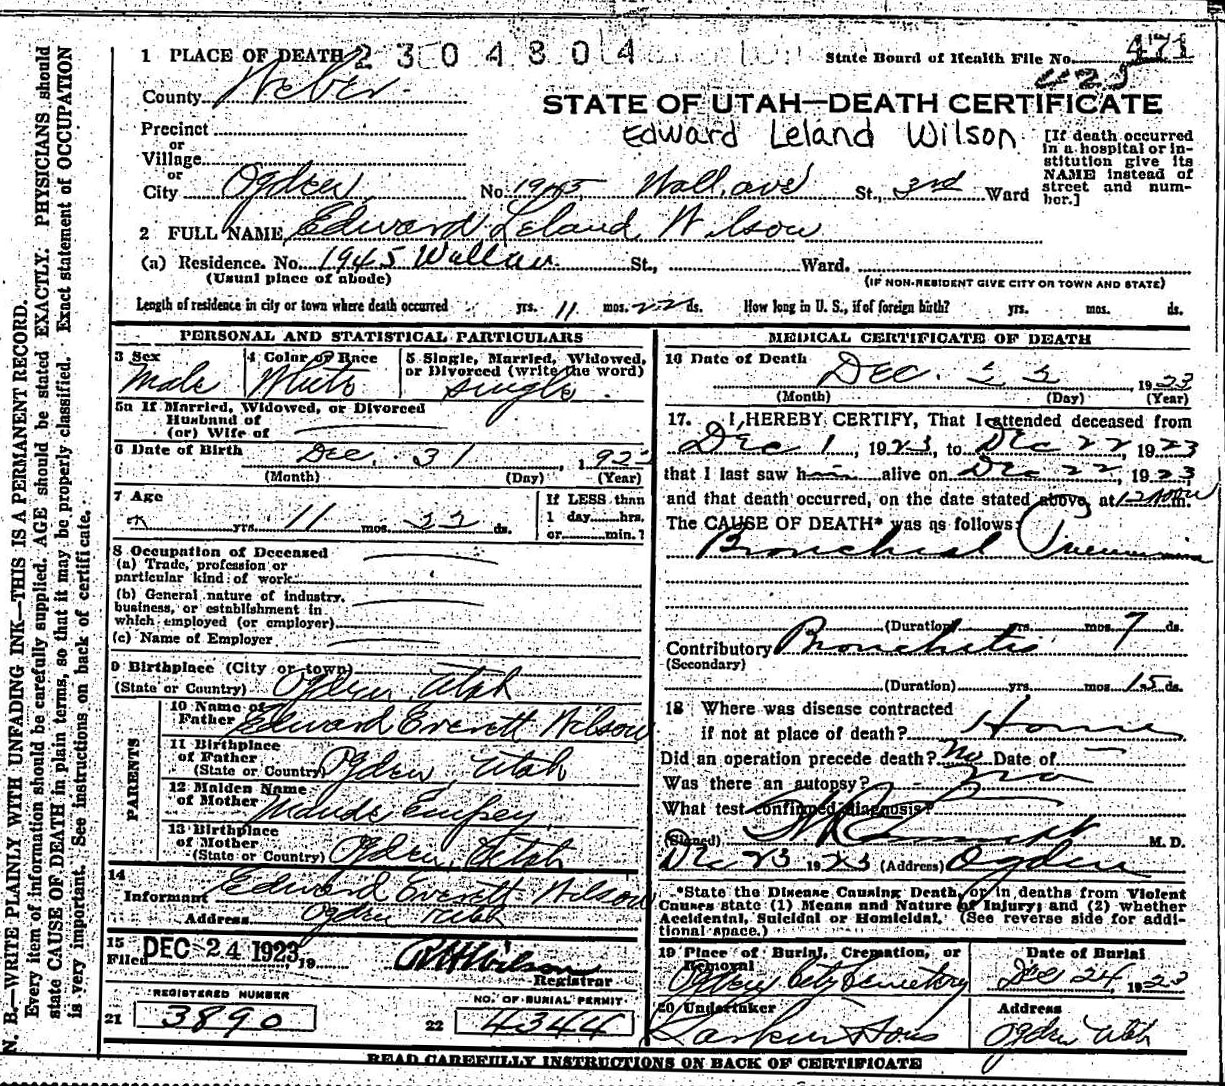 1 PLACE OF DEATH 2304804
State Board of Health File No. 471
County Weber
STATE OF UTAH—DEATH CERTIFICATE
Edward Leland Wilson
Precinct
or
Village
or
City Ogden No. 1945 Wall ave St., 3rd Ward
[If death occurred in a hospital or institution give its NAME instead of street and number.]
2 FULL NAME Edward Leland Wilson
(a) Residence. No. 1945 Wall av. St., Ward.
(Usual place of abode)
(IF NON-RESIDENT GIVE CITY OR TOWN AND STATE)
Length of residence in city or town where death occurred yrs. 11 mos. 22 ds. How long in U. S., if of foreign birth? yrs. mos. ds.
PERSONAL AND STATISTICAL PARTICULARS
3 Sex Male
4 Color or Race White
5 Single, Married, Widowed, or Divorced (write the word) single
5a If Married, Widowed, or Divorced
Husband of
(or) Wife of
6 Date of Birth Dec. 31, 1922
(Month) (Day) (Year)
7 Age
yrs. 11 mos. 22 ds.
If LESS than
1 day hrs.
or min.?
8 Occupation of Deceased
(a) Trade, profession or
particular kind of work
(b) General nature of industry,
business, or establishment in
which employed (or employer)
(c) Name of Employer
9 Birthplace (City or town)
(State or Country) Ogden, Utah
PARENTS
10 Name of Father Edward Everett Wilson
11 Birthplace of Father
(State or Country) Ogden, Utah
12 Maiden Name of Mother Maude Empey
13 Birthplace of Mother
(State or Country) Ogden, Utah
14
Informant Edward Everett Wilson
Address Ogden Utah
15
Filed DEC 24 1923, 19
Registrar
REGISTERED NUMBER
21 3890
NO. OF BURIAL PERMIT
22 4344
MEDICAL CERTIFICATE OF DEATH
16 Date of Death
Dec. 22 1923
(Month) (Day) (Year)
17. I HEREBY CERTIFY, That I attended deceased from
Dec 1, 1923, to Dec 22, 1923
that I last saw him alive on Dec 22, 1923
and that death occurred, on the date stated above, at 12 noon m.
The CAUSE OF DEATH* was as follows:
Bronchial Pneumonia
(Duration) yrs. mos. 7 ds.
Contributory Bronchitis
(Secondary)
(Duration) yrs. mos. 15 ds.
18 Where was disease contracted
if not at place of death? Home
Did an operation precede death? no Date of
Was there an autopsy? no
What test confirmed diagnosis?
(Signed) M. D.
Dec 23 1923 (Address) Ogden
*State the Disease Causing Death, or in deaths from Violent
Causes state (1) Means and Nature of Injury; and (2) whether
Accidental, Suicidal or Homicidal. (See reverse side for addi-
tional space.)
19 Place of Burial, Cremation, or Removal
Ogden City Cemetery
Date of Burial
Dec 24, 1923
20 Undertaker
Larkin & Sons
Address
Ogden Utah
READ CAREFULLY INSTRUCTIONS ON BACK OF CERTIFICATE
N. B.—WRITE PLAINLY WITH UNFADING INK—THIS IS A PERMANENT RECORD.
Every item of information should be carefully supplied. AGE should be stated EXACTLY. PHYSICIANS should
state CAUSE OF DEATH in plain terms, so that it may be properly classified. Exact statement of OCCUPATION
is very important. See instructions on back of certificate.